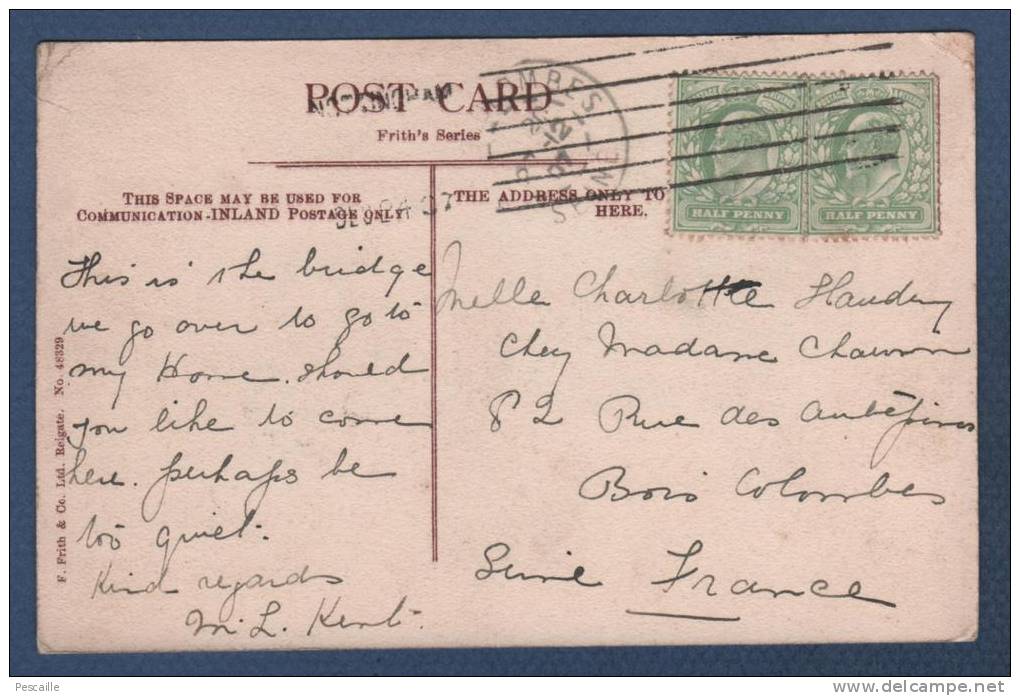 POST CARD
Frith's Series
THIS SPACE MAY BE USED FOR
COMMUNICATION-INLAND POSTAGE ONLY
THE ADDRESS ONLY TO
HERE.
NOTTINGHAM
HALF PENNY
HALF PENNY
This is the bridge
we go over to go to
my Home. should
you like to come
here. perhaps be
too quiet.
Kind regards
M. L. Kent.
Melle Charlotte
Chez Madame
82 Rue des Aubépines
Bois Colombes
Seine France
F. Frith & Co. Ltd. Reigate. No. 48329
Pescaille
www.delcampe.net